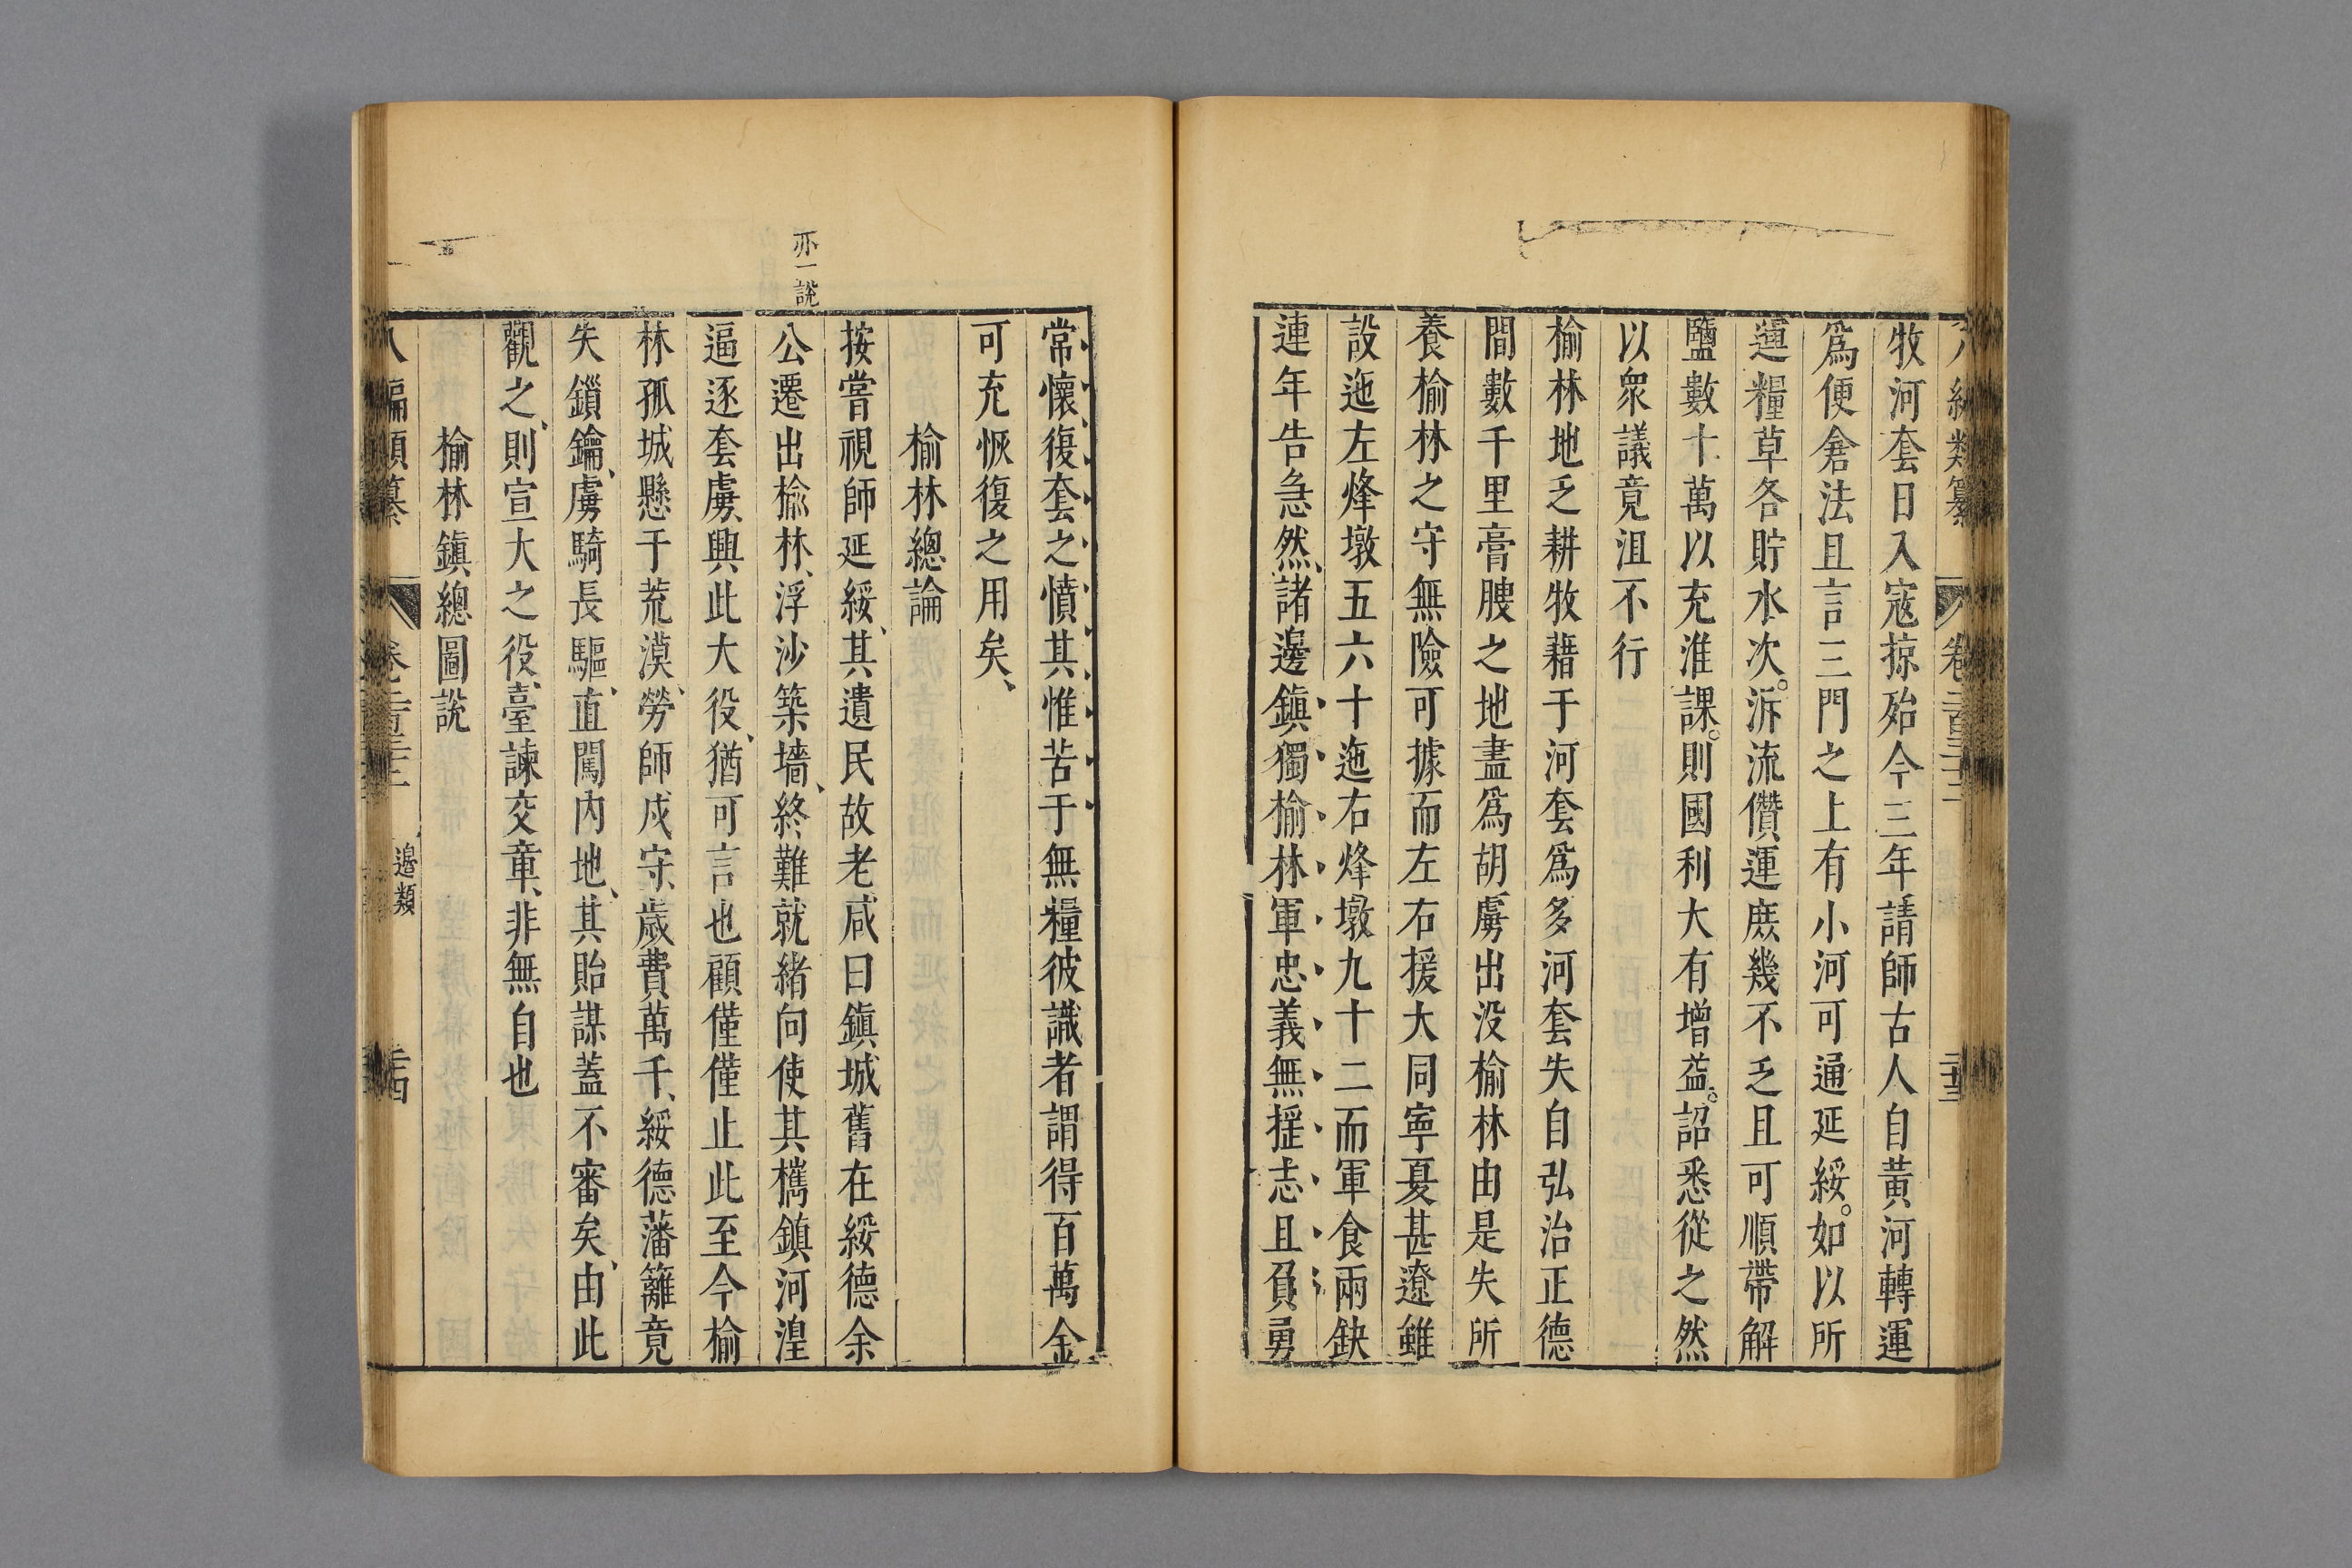 牧河套日入寇掠殆今三年請師古人自黃河轉運
爲便倉法且言三門之上有小河可通延綏。如以所
運糧草各貯水次。泝流儹運庶幾不乏且可順帶解
鹽數十萬以充淮課。則國利大有增益。詔悉從之然
以衆議竟沮不行
榆林地乏耕牧藉于河套爲多河套失自弘治正德
間數千里膏腴之地盡爲胡虜出没榆林由是失所
養榆林之守無險可據而左右援大同寧夏甚遼雖
設迤左烽墩五六十迤右烽墩九十二而軍食兩缺
連年告急然、諸邊鎮獨榆林軍忠義無摇志且負勇
常懷復套之憤其惟苦于無糧彼識者謂得百萬金
可充恢復之用矣、
榆林總論
亦一說
按嘗視師延綏、其遺民故老咸曰鎮城舊在綏德余
公遷出榆林、浮沙築墻、終難就緒向使其檇鎮河湟
逼逐套虜、興此大役、猶可言也顧僅僅止此至今榆
林孤城懸于荒漠、勞師戍守、歲費萬千、綏德藩籬竟
失鎖鑰、虜騎長驅、直闖内地、其貽謀蓋不審矣、由此
觀之、則宣大之役、臺諫交章、非無自也
榆林鎮總圖說
八編類纂
邉類